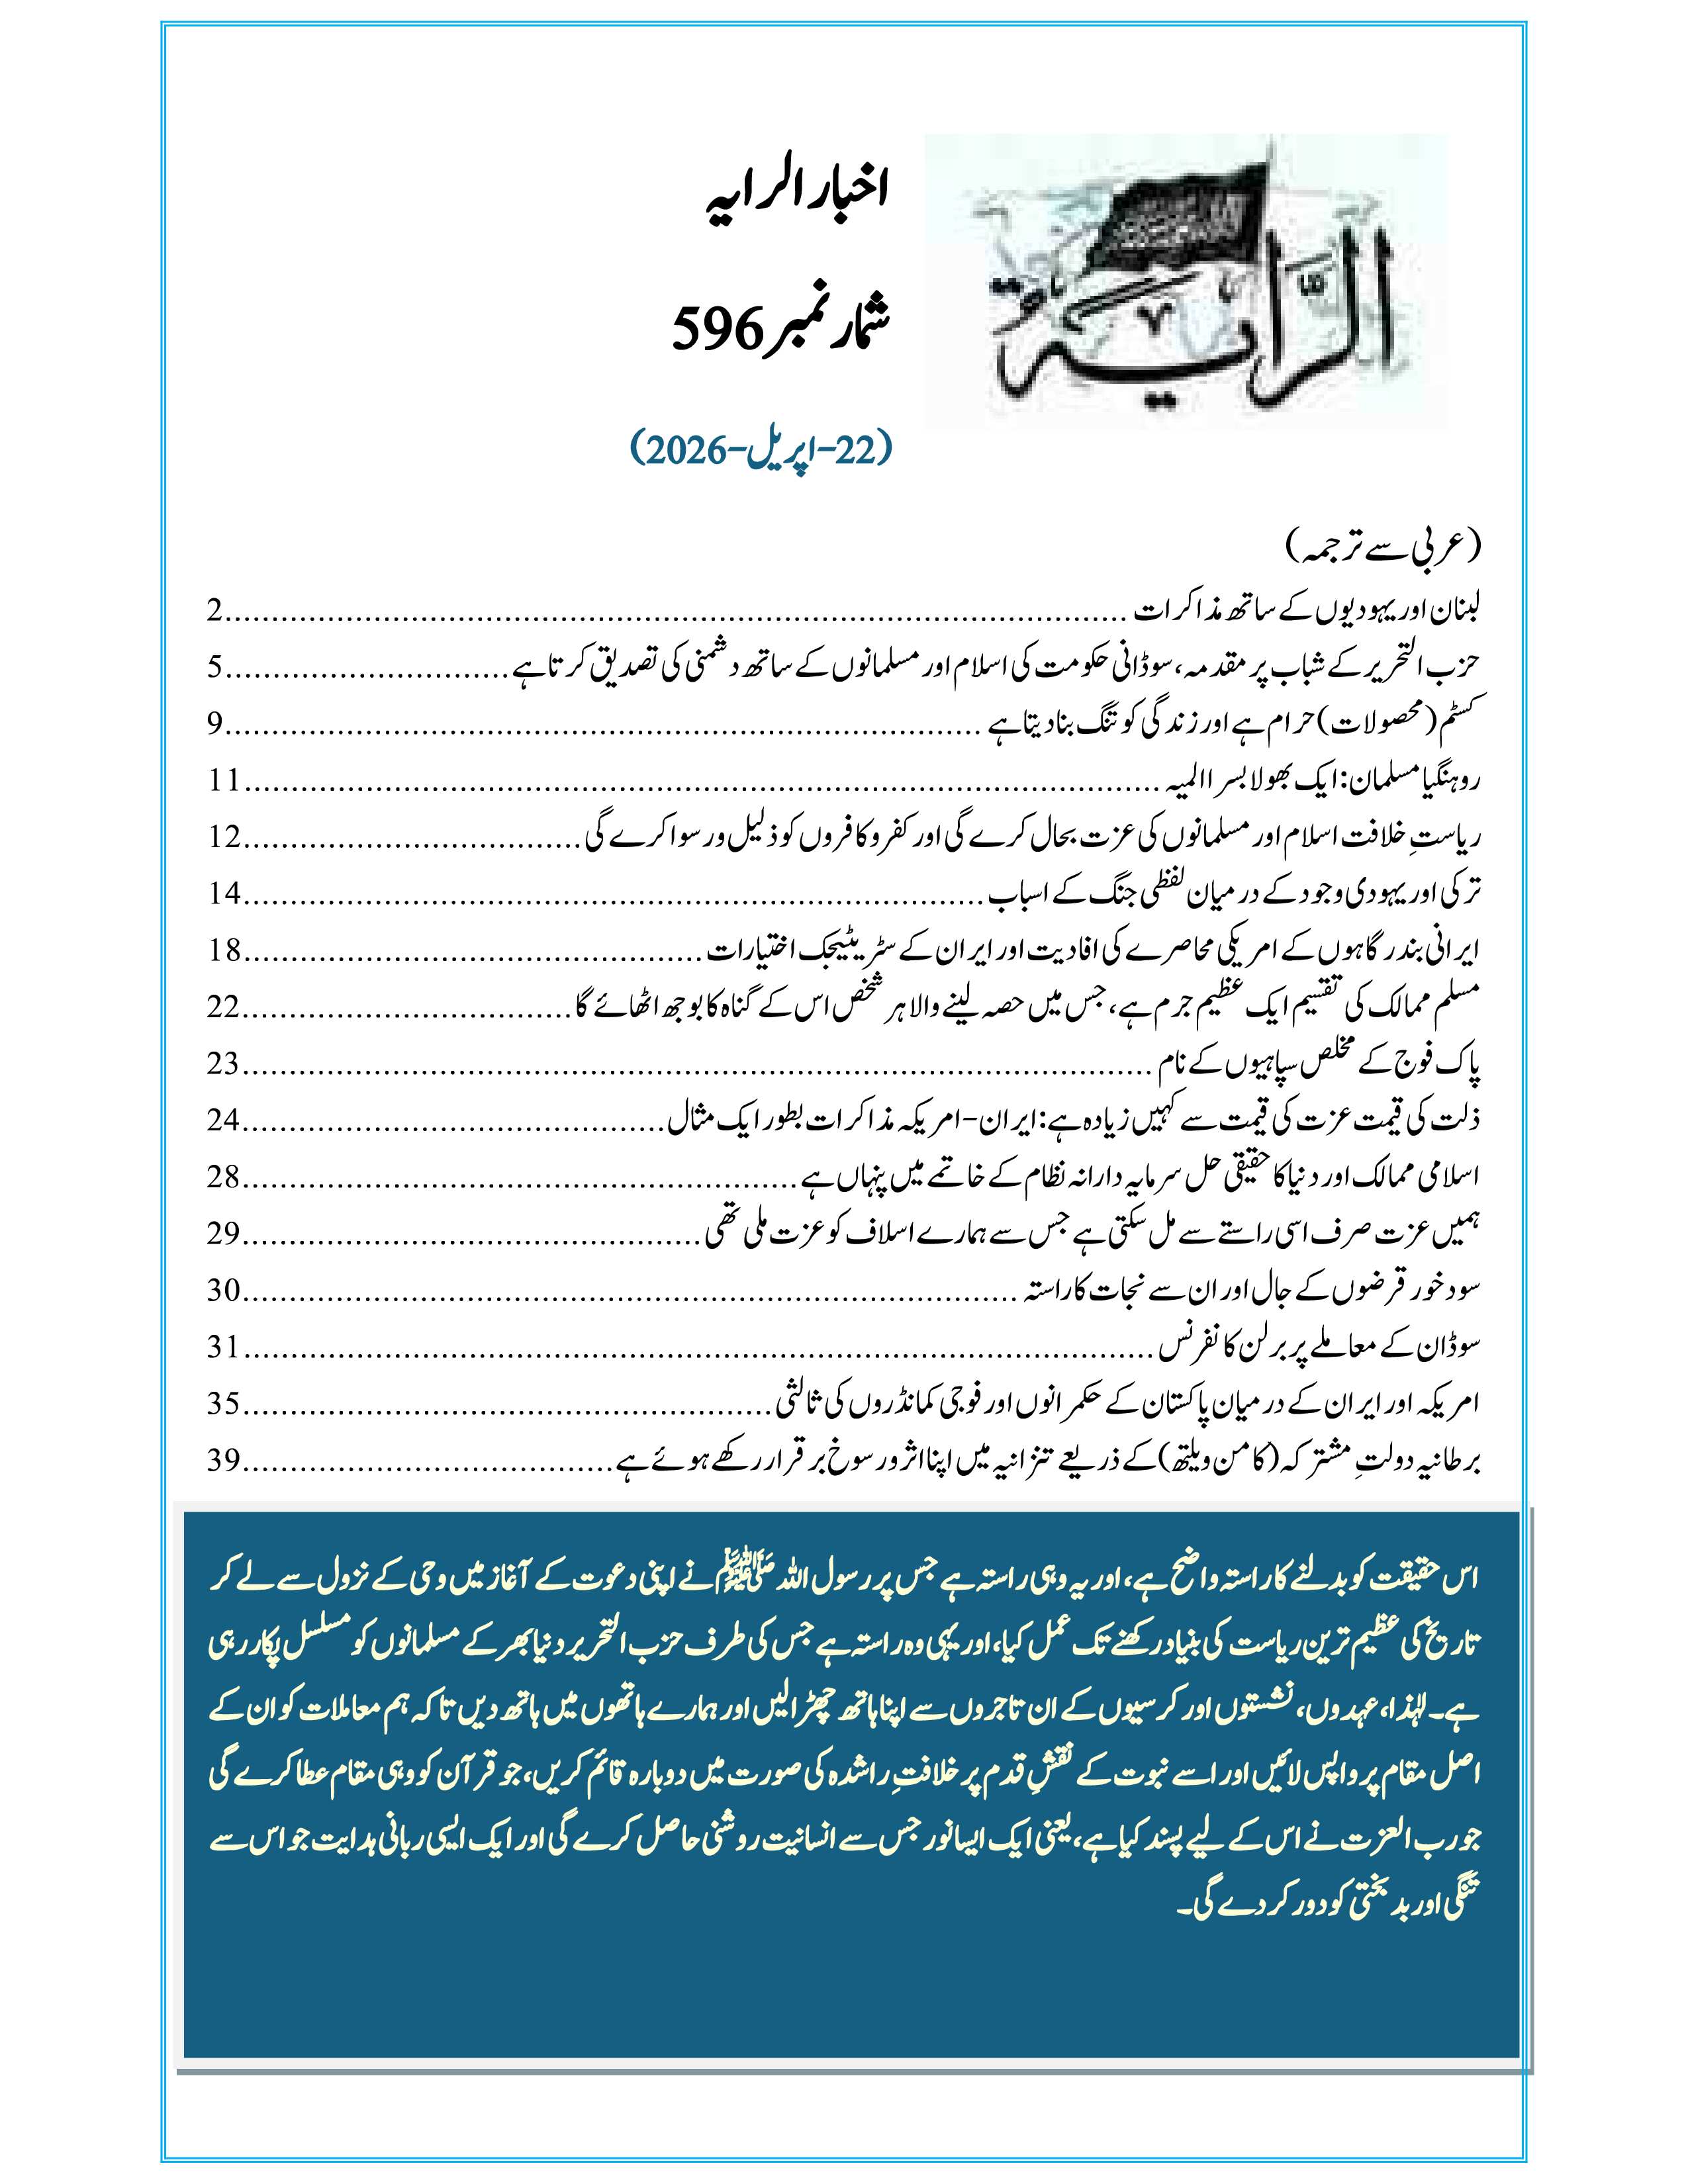 الرَّایة
اخبار الرایہ
شمار نمبر 596
(22-اپریل-2026)
(عربی سے ترجمہ)
لبنان اور یہودیوں کے ساتھ مذاکرات ........ 2
حزب التحریر کے شباب پر مقدمہ، سوڈانی حکومت کی اسلام اور مسلمانوں کے ساتھ دشمنی کی تصدیق کرتا ہے ........ 5
کسٹم (محصولات) حرام ہے اور زندگی کو تنگ بنا دیتا ہے ........ 9
روہنگیا مسلمان: ایک بھولا بسرا المیہ ........ 11
ریاستِ خلافت اسلام اور مسلمانوں کی عزت بحال کرے گی اور کفر و کافروں کو ذلیل و رسوا کرے گی ........ 12
ترکی اور یہودی وجود کے درمیان لفظی جنگ کے اسباب ........ 14
ایرانی بندرگاہوں کے امریکی محاصرے کی افادیت اور ایران کے سٹریٹیجک اختیارات ........ 18
مسلم ممالک کی تقسیم ایک عظیم جرم ہے، جس میں حصہ لینے والا ہر شخص اس کے گناہ کا بوجھ اٹھائے گا ........ 22
پاک فوج کے مخلص سپاہیوں کے نام ........ 23
ذلت کی قیمت عزت کی قیمت سے کہیں زیادہ ہے: ایران-امریکہ مذاکرات بطور ایک مثال ........ 24
اسلامی ممالک اور دنیا کا حقیقی حل سرمایہ دارانہ نظام کے خاتمے میں پنہاں ہے ........ 28
ہمیں عزت صرف اسی راستے سے مل سکتی ہے جس سے ہمارے اسلاف کو عزت ملی تھی ........ 29
سود خور قرضوں کے جال اور ان سے نجات کا راستہ ........ 30
سوڈان کے معاملے پر برلن کانفرنس ........ 31
امریکہ اور ایران کے درمیان پاکستان کے حکمرانوں اور فوجی کمانڈروں کی ثالثی ........ 35
برطانیہ دولتِ مشترکہ (کامن ویلتھ) کے ذریعے تنزانیہ میں اپنا اثر و رسوخ برقرار رکھے ہوئے ہے ........ 39
اس حقیقت کو بدلنے کا راستہ واضح ہے، اور یہ وہی راستہ ہے جس پر رسول اللہ ﷺ نے اپنی دعوت کے آغاز میں وحی کے نزول سے لے کر
تاریخ کی عظیم ترین ریاست کی بنیاد رکھنے تک عمل کیا، اور یہی وہ راستہ ہے جس کی طرف حزب التحریر دنیا بھر کے مسلمانوں کو مسلسل پکار رہی
ہے۔ لہٰذا، عہدوں، نشستوں اور کرسیوں کے ان تاجروں سے اپنا ہاتھ چھڑا لیں اور ہمارے ہاتھوں میں ہاتھ دیں تاکہ ہم معاملات کو ان کے
اصل مقام پر واپس لائیں اور اسے نبوت کے نقشِ قدم پر خلافتِ راشدہ کی صورت میں دوبارہ قائم کریں، جو قرآن کو وہی مقام عطا کرے گی
جو رب العزت نے اس کے لیے پسند کیا ہے، یعنی ایک ایسا نور جس سے انسانیت روشنی حاصل کرے گی اور ایک ایسی ربانی ہدایت جو اس سے
تنگی اور بدبختی کو دور کر دے گی۔